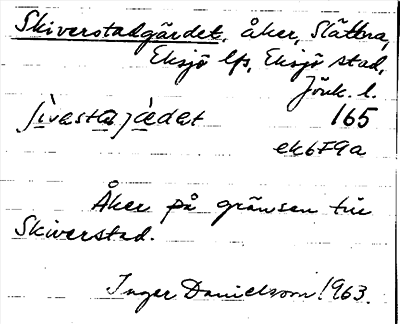 Skiverstadgärdet, åker, Slättna,
Eksjö lfs, Eksjö stad,
Jönk. l.
ʃìvəsta jæ̀dət 165
ek679a
Åker på gränsen till
Skiverstad.
Inger Danielsson 1963.